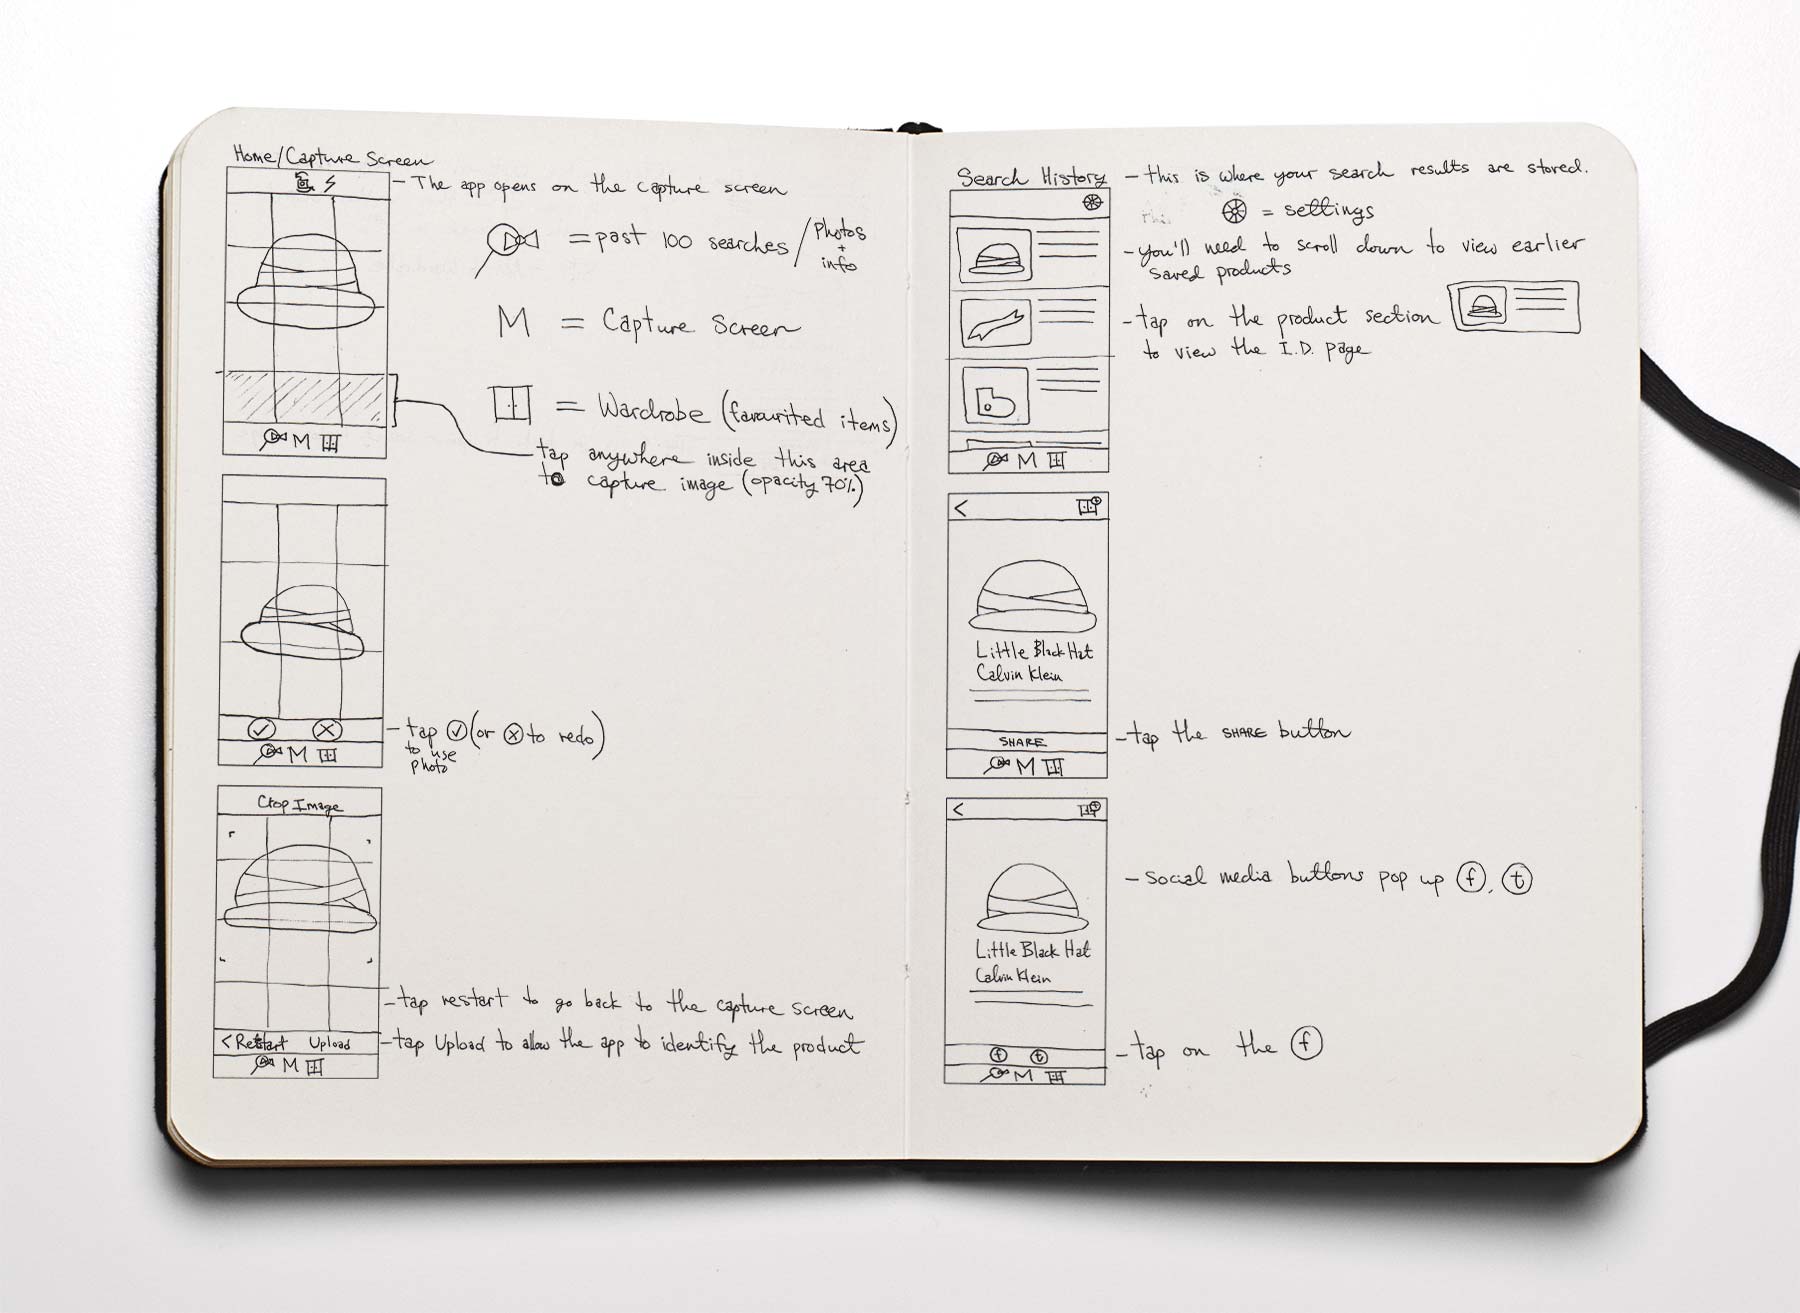 Home/Capture Screen
- The app opens on the capture screen
= past 100 searches / Photos + info
M = Capture Screen
= Wardrobe (favourited items)
tap anywhere inside this area
to capture image (opacity 70%)
M
- tap ✓ (or x to redo)
to use
photo
M
Crop Image
- tap restart to go back to the capture screen
< Restart Upload
- tap Upload to allow the app to identify the product
M
Search History - this is where your search results are stored.
= settings
- you'll need to scroll down to view earlier
saved products
- tap on the product section
to view the I.D. page
M
<
Little Black Hat
Calvin Klein
SHARE
- tap the SHARE button
M
<
- Social media buttons pop up f, t
Little Black Hat
Calvin Klein
f t
- tap on the f
M